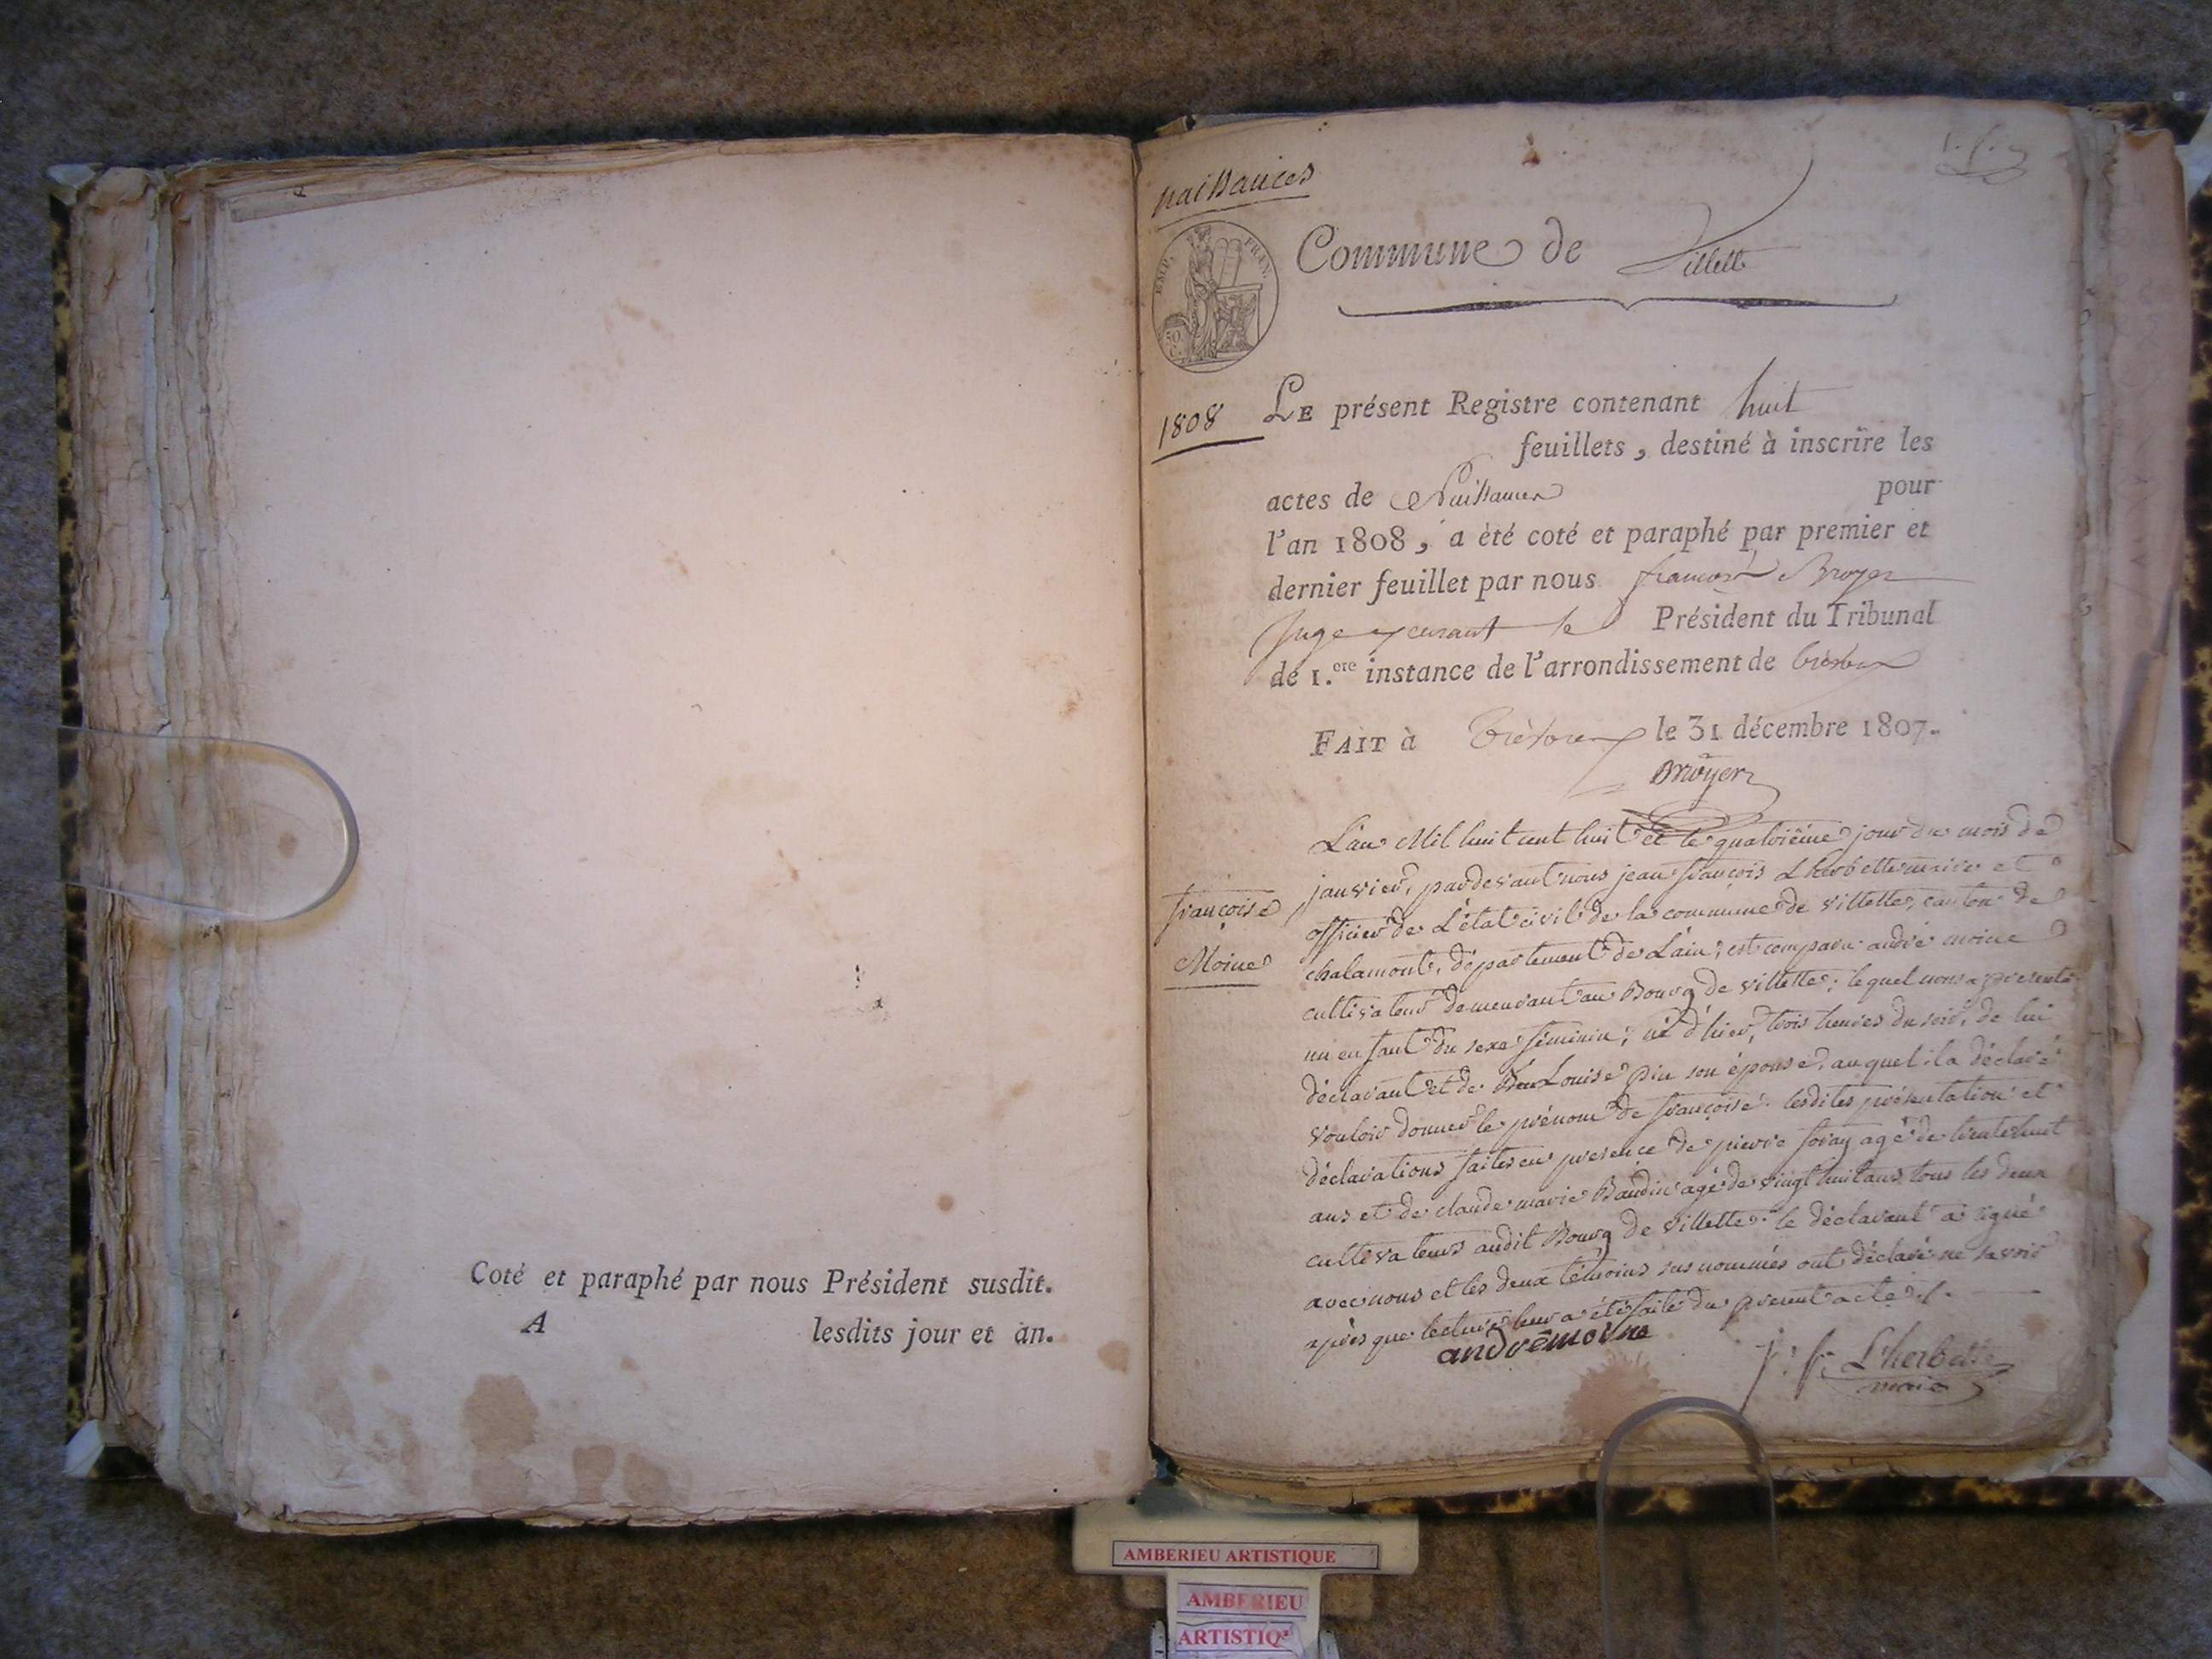 Coté et paraphé par nous Président susdit.
A lesdits jour et an.
naissances
Commune de Villette
EMP. FRAN.
50 C.
1808
LE présent Registre contenant huit
feuillets, destiné à inscrire les
actes de Naissances pour
l'an 1808, a été coté et paraphé par premier et
dernier feuillet par nous françois Broyer
Juge exerant le Président du Tribunal
de 1.ere instance de l'arrondissement de trévoux
FAIT à trévoux le 31 décembre 1807.
Broyer
françoise
Moine
L'an Mil huit cent huit et le quatrième jour du mois de
janvier, pardevant nous jean françois Lherbette maire et
officier de L'état civil de la commune de villette, canton de
chalamont, département de L'ain; est comparu andré moine
cultivateur demeurant au Bourg de villette; lequel nous a presenté
un enfant du sexe féminin; né d'hier, trois heures du soir, de lui
déclarant et de Louise pin son épouse, auquel il a déclaré
vouloir donner le prénom de françoise. lesdites présentation et
déclarations faites en presence de pierre foray agé de trente huit
ans et de claude marie Baudin agé de vingt huit ans, tous les deux
cultivateurs audit Bourg de villette. le déclarant a signé
avec nous et les deux témoins sus nommés ont déclaré ne savoir
après que lecture leur a été faite du present acte
andrémoine
j. f. Lherbette
maire
AMBERIEU ARTISTIQUE
AMBERIEU
ARTISTIQ